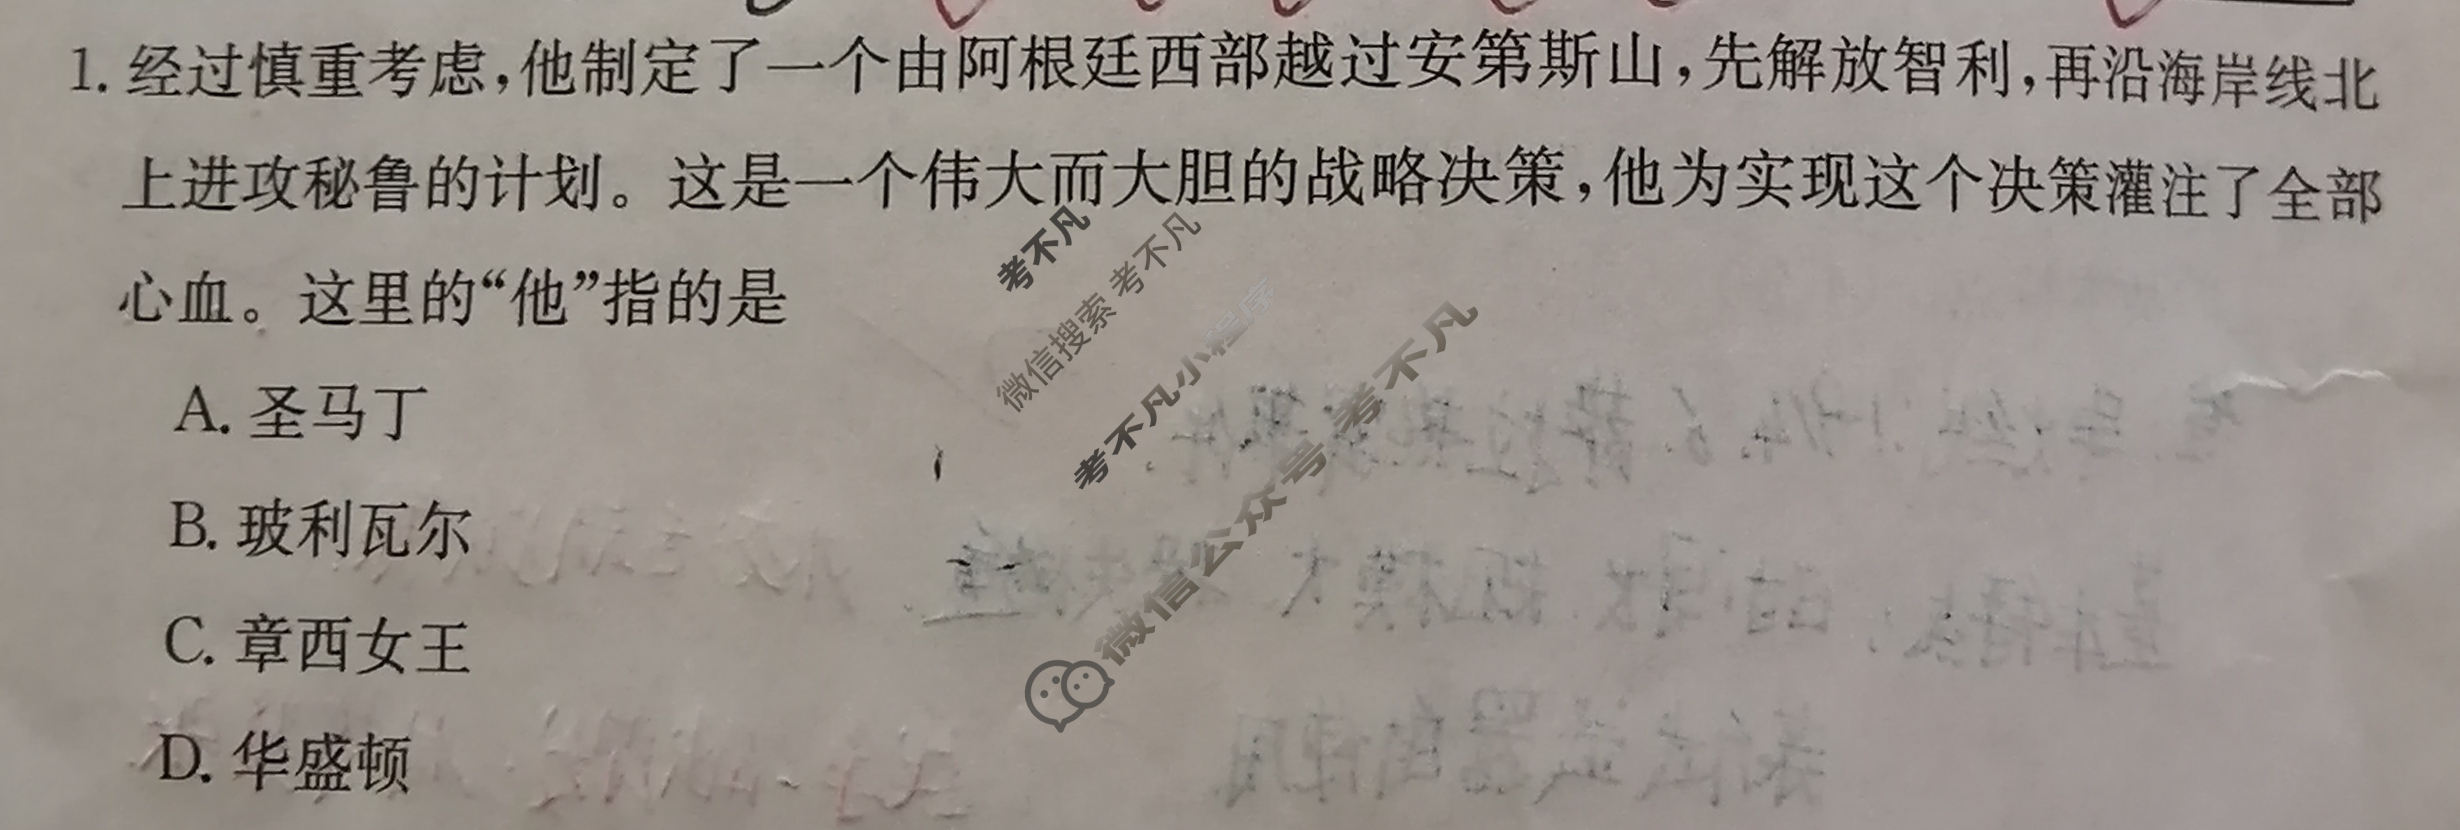 1. 经过慎重考虑,他制定了一个由阿根廷西部越过安第斯山,先解放智利,再沿海岸线北
上进攻秘鲁的计划。这是一个伟大而大胆的战略决策,他为实现这个决策灌注了全部
心血。这里的“他”指的是
A. 圣马丁
B. 玻利瓦尔
C. 章西女王
D. 华盛顿
考不凡
微信搜索 考不凡
考不凡小程序
微信公众号 考不凡